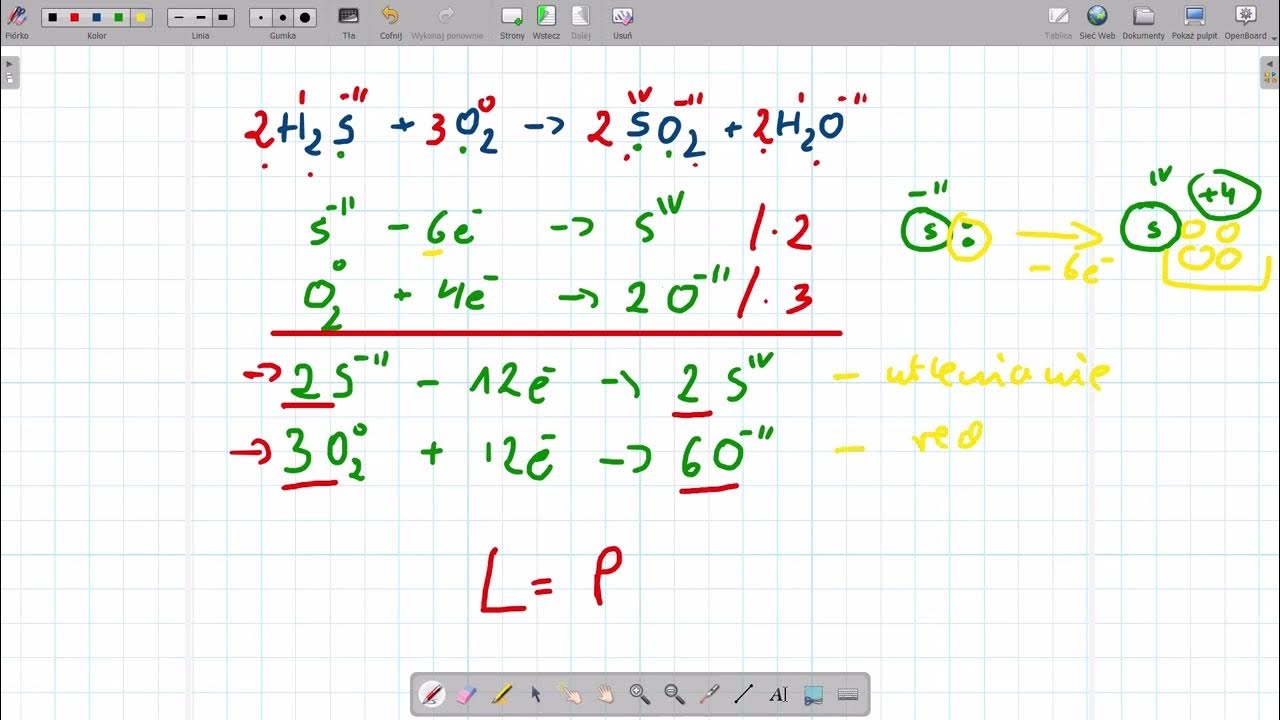 Piórko Kolor Linia Gumka Tła Cofnij Wykonaj ponownie Strony Wstecz Dalej Usuń Tablica Sieć Web Dokumenty Pokaż pulpit OpenBoard
2H₂^I S^-II + 3O₂^0 -> 2S^IV O₂^-II + 2H₂^I O^-II
S^-II - 6e^- -> S^IV /·2
O₂^0 + 4e^- -> 2O^-II /·3
-II S - 6e^- IV S +4
-> 2S^-II - 12e^- -> 2S^IV - utlenianie
-> 3O₂^0 + 12e^- -> 6O^-II - red
L = P
AI